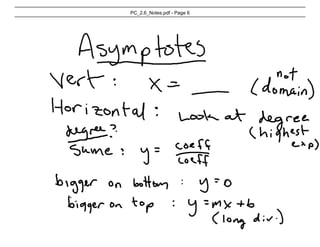 PC_2.6_Notes.pdf - Page 6
Asymptotes
Vert: x = ___ (not domain)
Horizontal: Look at degree (highest exp)
degree?
Same: y = coeff/coeff
bigger on bottom: y=0
bigger on top: y=mx+b
(long div.)